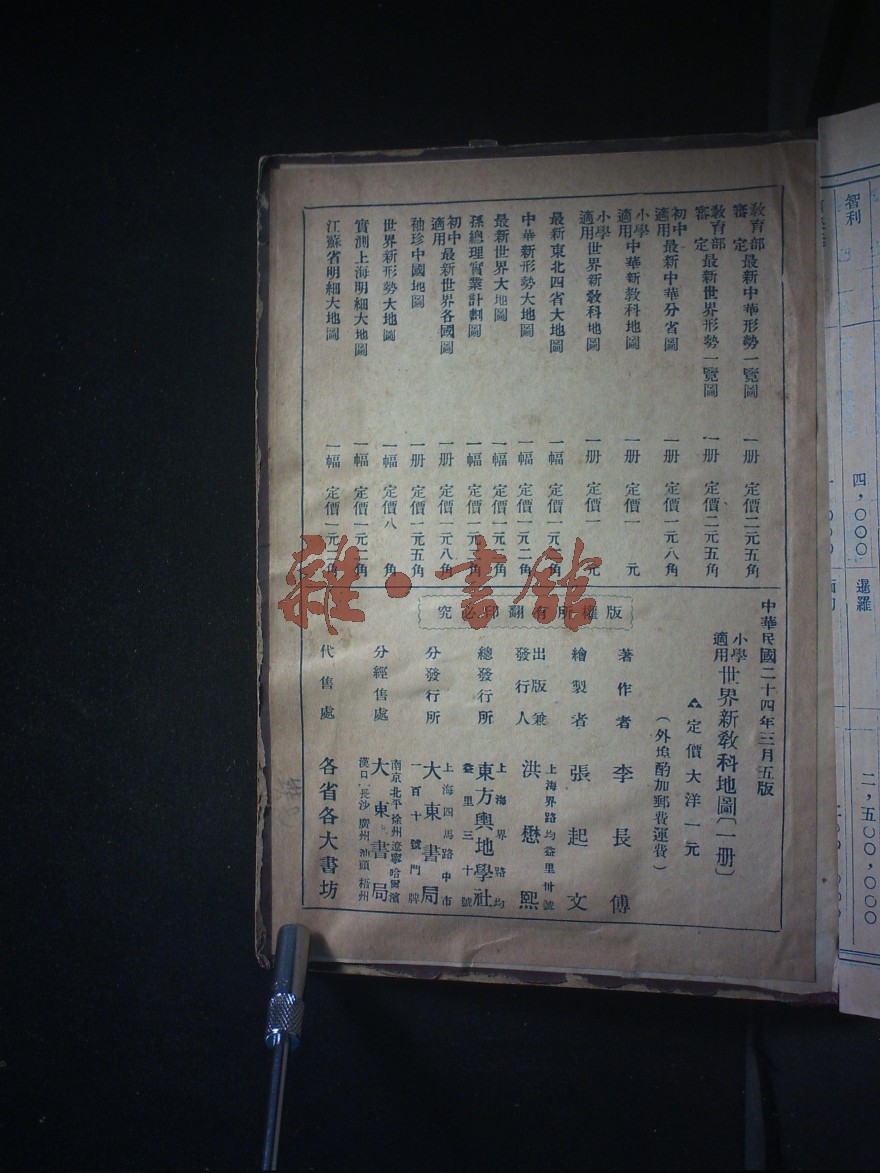 教育部審定 最新中華形勢一覽圖 一册 定價二元五角
教育部審定 最新世界形勢一覽圖 一册 定價二元五角
初中適用 最新中華分省圖 一册 定價一元八角
小學適用 中華新教科地圖 一册 定價一元
小學適用 世界新教科地圖 一册 定價一元
最新東北四省大地圖 一幅 定價一元 角
中華新形勢大地圖 一幅 定價一元二角
最新世界大地圖 一幅 定價一元 角
孫總理實業計劃圖 一幅 定價一元 角
初中適用 最新世界各國圖 一册 定價一元八角
袖珍中國地圖 一册 定價一元五角
世界新形勢大地圖 一幅 定價八角
實測上海明細大地圖 一幅 定價一元二角
江蘇省明細大地圖 一幅 定價一元 角
中華民國二十四年三月五版
小學適用 世界新教科地圖〔一册〕
定價大洋一元
（外埠酌加郵費運費）
版權所有翻印必究
著作者 李長傅
繪製者 張起文
出版兼發行人 洪懋熙
上海界路均益里卅號
總發行所 東方輿地學社
上海界路均益里三十號
分發行所 大東書局
上海四馬路中市一百十號門牌
分經售處 大東書局
南京北平徐州遼寧哈爾濱
漢口長沙廣州汕頭梧州
代售處 各省各大書坊
雜·書館
智利
四,〇〇〇
暹羅
二,五〇〇,〇〇〇